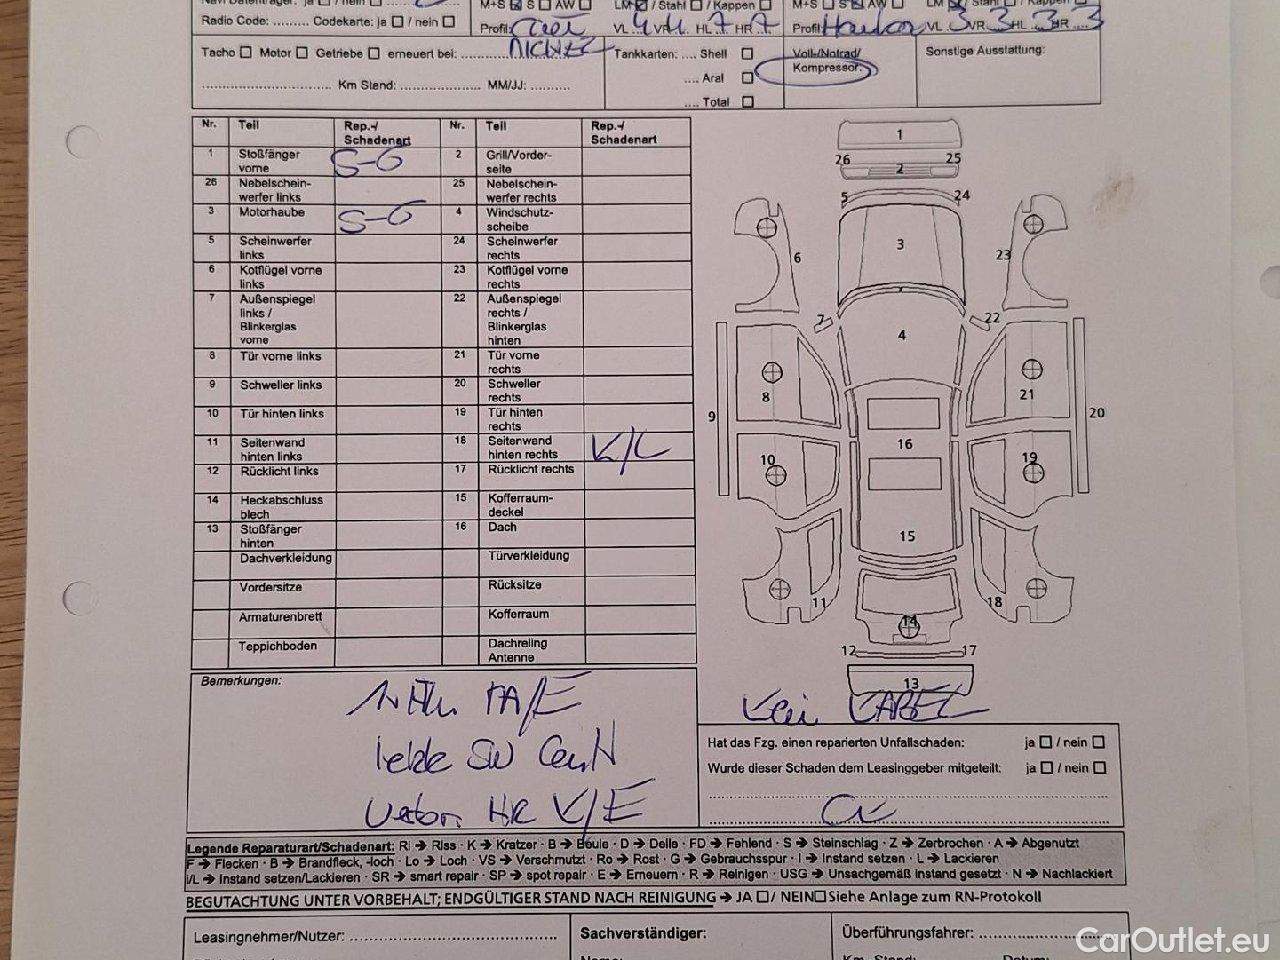 Radio Code: ........... Codekarte: ja ☐ / nein ☐
M+S ☑ S ☐ AW ☐
LM ☑ / Stahl ☐ / Kappen ☐
Profil:
VL HL 7 HR 7
Profil:
VL 3 VR 3 HL 3 HR 3
Tacho ☐ Motor ☐ Getriebe ☐ erneuert bei:
Km Stand: .................... MM/JJ: ..........
Tankkarten: .... Shell ☐
.... Aral ☐
.... Total ☐
Voll-/Notrad/
Kompressor:
Sonstige Ausstattung:
Nr. Teil Rep.-/ Schadenart Nr. Teil Rep.-/ Schadenart
1 Stoßfänger vorne S-G 2 Grill/Vorder-seite
26 Nebelschein-werfer links 25 Nebelschein-werfer rechts
3 Motorhaube S-G 4 Windschutz-scheibe
5 Scheinwerfer links 24 Scheinwerfer rechts
6 Kotflügel vorne links 23 Kotflügel vorne rechts
7 Außenspiegel links / Blinkerglas vorne 22 Außenspiegel rechts / Blinkerglas hinten
8 Tür vorne links 21 Tür vorne rechts
9 Schweller links 20 Schweller rechts
10 Tür hinten links 19 Tür hinten rechts
11 Seitenwand hinten links 18 Seitenwand hinten rechts K/L
12 Rücklicht links 17 Rücklicht rechts
14 Heckabschluss blech 15 Kofferraum-deckel
13 Stoßfänger hinten 16 Dach
Dachverkleidung Türverkleidung
Vordersitze Rücksitze
Armaturenbrett Kofferraum
Teppichboden Dachreling Antenne
1
26 25
2
5 24
3
6 23
7 22
4
8 21
9 20
16
10 19
15
11 18
14
12 17
13
Bemerkungen:
HR K/E
Kein KABEL
Hat das Fzg. einen reparierten Unfallschaden: ja ☐ / nein ☐
Wurde dieser Schaden dem Leasinggeber mitgeteilt: ja ☐ / nein ☐
Legende Reparaturart/Schadenart: RI ➔ Riss · K ➔ Kratzer · B ➔ Beule · D ➔ Delle · FD ➔ Fehlend · S ➔ Steinschlag · Z ➔ Zerbrochen · A ➔ Abgenutzt
F ➔ Flecken · B ➔ Brandfleck, -loch · Lo ➔ Loch · VS ➔ Verschmutzt · Ro ➔ Rost · G ➔ Gebrauchsspur · I ➔ Instand setzen · L ➔ Lackieren
I/L ➔ Instand setzen/Lackieren · SR ➔ smart repair · SP ➔ spot repair · E ➔ Erneuern · R ➔ Reinigen · USG ➔ Unsachgemäß instand gesetzt · N ➔ Nachlackiert
BEGUTACHTUNG UNTER VORBEHALT; ENDGÜLTIGER STAND NACH REINIGUNG ➔ JA ☐ / NEIN☐ Siehe Anlage zum RN-Protokoll
Leasingnehmer/Nutzer:
Sachverständiger:
Überführungsfahrer:
CarOutlet.eu